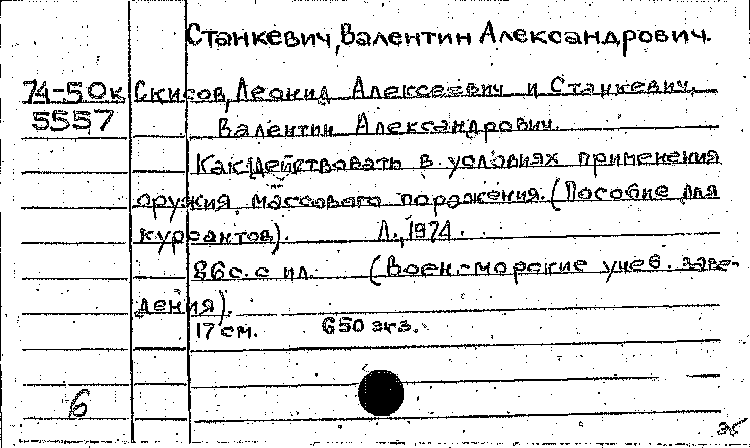 Станкевич, Валентин Александрович.
74-50к Скисов, Леонид Алексеевич и Станкевич,
5557 Валентин Александрович.
Как действовать в условиях применения
оружия массового поражения. (Пособие для
курсантов). Л., 1974.
86 с. с ил. (Воен.-морские учеб. заве-
дения).
17 см. 650 экз.
6